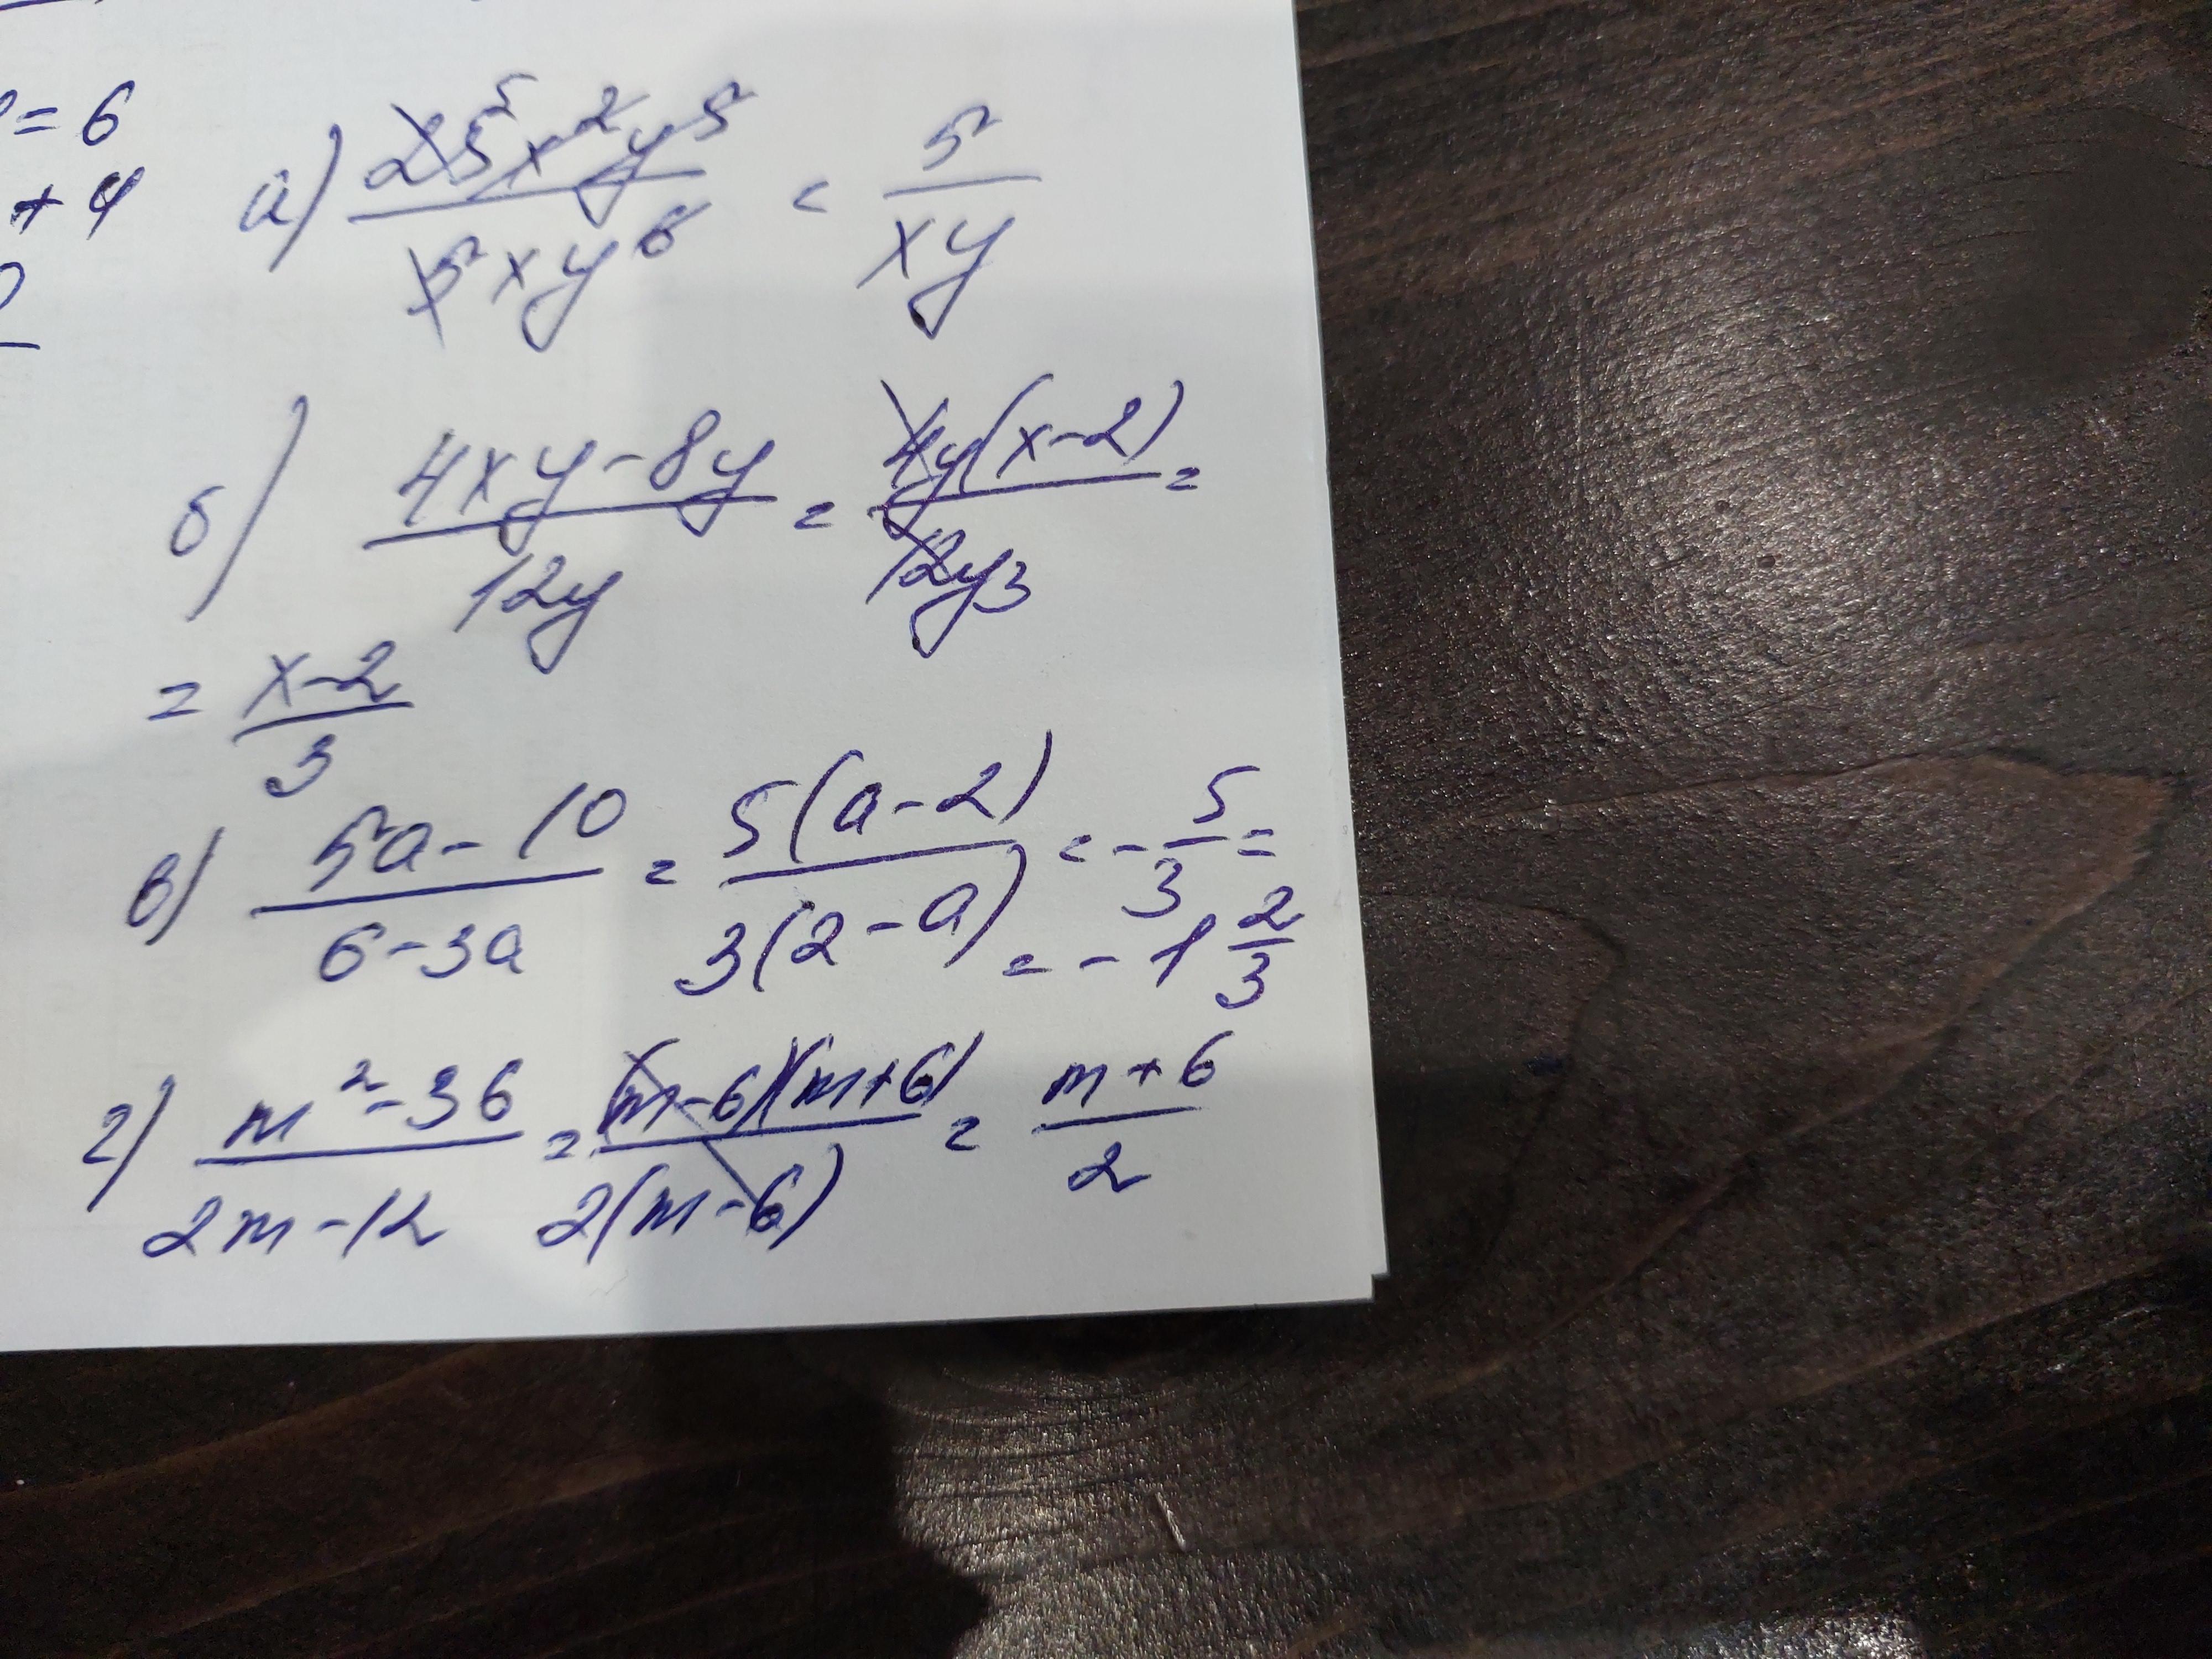 = 6
+ 4
а) 25⁵x²y⁵ / 5xy⁶ = 5 / xy
б) 4xy - 8y / 12y = 4y(x - 2) / 12y3 =
= x - 2 / 3
в) 5a - 10 / 6 - 3a = 5(a - 2) / 3(2 - a) = - 5 / 3 =
= - 1 2/3
г) m² - 36 / 2m - 12 = (m - 6)(m + 6) / 2(m - 6) = m + 6 / 2